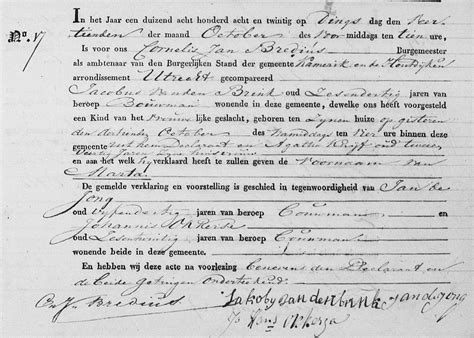 In het Jaar een duizend acht honderd acht en twintig op Dings dag den Veer
tienden der maand October des Voor middags ten tien ure,
No. 17
Is voor ons Cornelis Jan Bredius Burgemeester
als ambtenaar van den Burgerlijken Stand der gemeente Kamerik en de Houtdijken
arrondissement Utrecht gecompareerd
Jacobus van den Brink oud Zesendertig jaren van
beroep Bouwman wonende in deze gemeente, dewelke ons heeft voorgesteld
een Kind van het Vrouwelijke geslacht, geboren ten Zijnen huize op gisteren
den dertienden October des Namiddags ten Vier ure binnen deze
gemeente uit hem Declarant en Agatha Kruijff oud twee
en aan het welk hij verklaard heeft te zullen geven de Voornaam van
Marta
De gemelde verklaring en voorstelling is geschied in tegenwoordigheid van Jan de
Jong
oud Vijfendertig jaren van beroep Bouwman en
Johannis
oud Zesendertig jaren van beroep Bouwman
wonende beide in deze gemeente.
En hebben wij deze acte na voorlezing benevens den Declarant en
de beide getuigen onderteekend.
C J Bredius Jakob van den brink Jan de jong